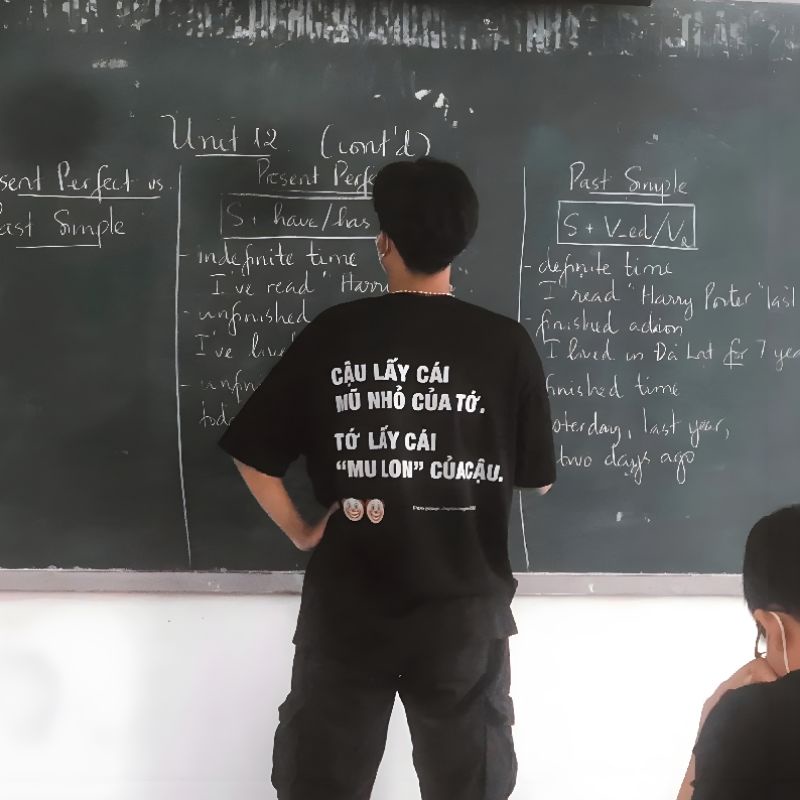 Unit 12 (cont'd)
sent Perfect vs.
ast Simple
Present Perfe
S + have/has
- indefinite time
I've read "Harry
- unfinished
I've live
- unfin
tod
Past Simple
S + V-ed/V2
- definite time
I read "Harry Porter" last
- finished action
I lived in Đà Lạt for 7 yea
finished time
yesterday, last year,
two days ago
CẬU LẤY CÁI
MŨ NHỎ CỦA TỚ.
TỚ LẤY CÁI
“MU LON” CỦA CẬU.